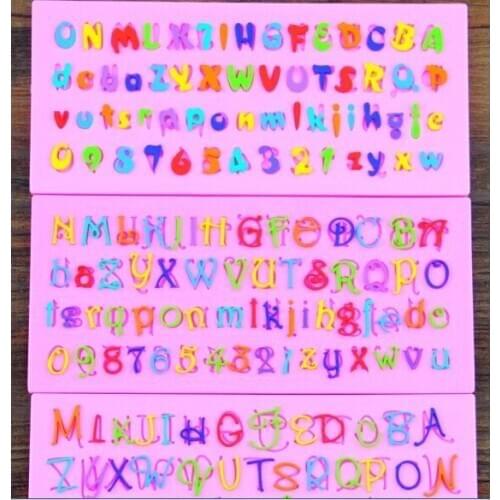 O N M L K Z I H G F E D C B A
d c b a Z Y X W V U T S R Q P
v u t s r q p o n m l k j i h g f e
0 9 8 7 6 5 4 3 2 1 z y x w
N M L K J I H G F E D C B A
b a Z Y X W V U T S R Q P O
t s r q p o n m l k j i h g f e d c
0 9 8 7 6 5 4 3 2 1 z y x w v u
M L K J I H G F E D C B A
Z Y X W V U T S R Q P O N